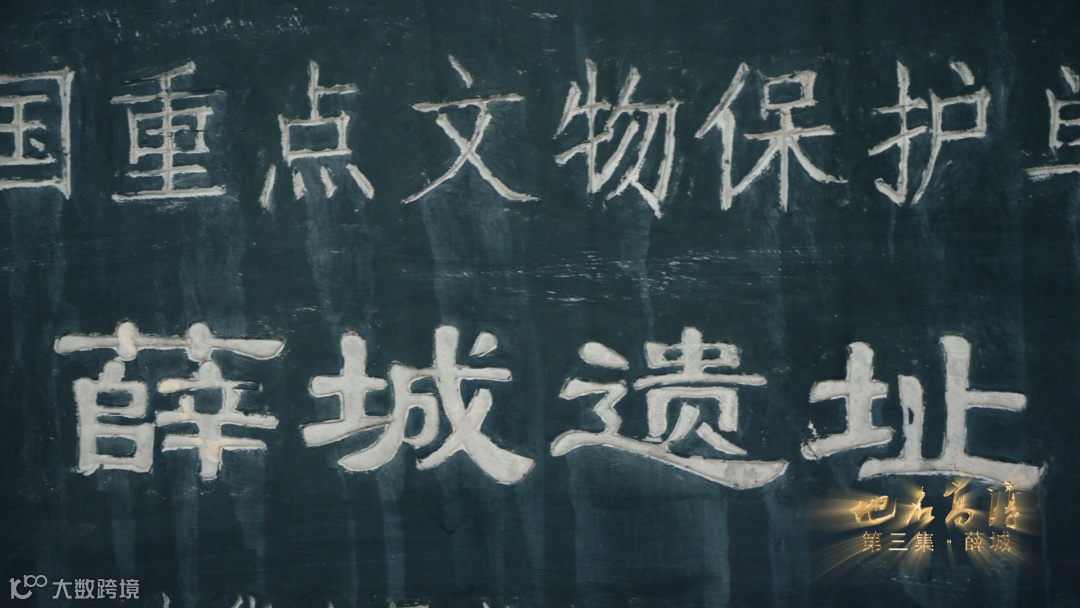 国重点文物保护单
薛城遗址
地名高淳
第三集·薛城
大数跨境